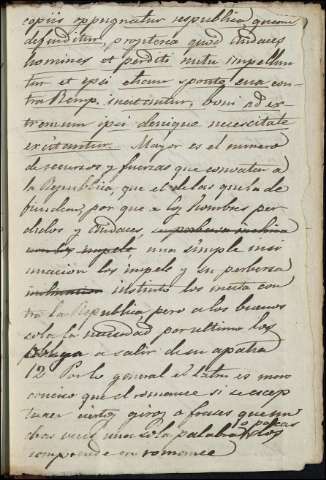 copiis oppugnatur respublica quam
defenditur, propterea quod audaces
homines et perditi nutu impellun
tur et ipsi etiam sponte sua con
tra Remp. incitantur, boni ad ex
tremum ipsi denique necessitate
excitantur. Mayor es el numero
de recursos y fuerzas que convaten a
la Republica, que el de las que la de
fienden, por que a los hombres per
didos y audaces,
una simple insi
nuacion los impele y su perversa
inclinacion instinto los incita con
tra la Republica pero a los buenos
sola la necesidad por ultimo los
obliga a salir de su apatia
12 Por lo general el latin es mas
conciso que el romance si se escep
tuan ciertos giros o frases que en
dos veces una sola palabra o pocas
comprende en romance